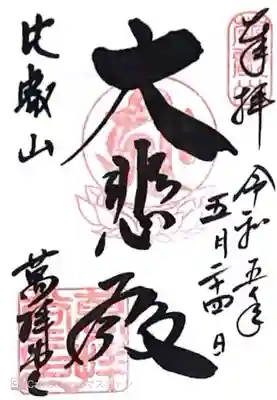 奉拝
令和五年
五月二十四日
大悲殿
比叡山
萬拝堂